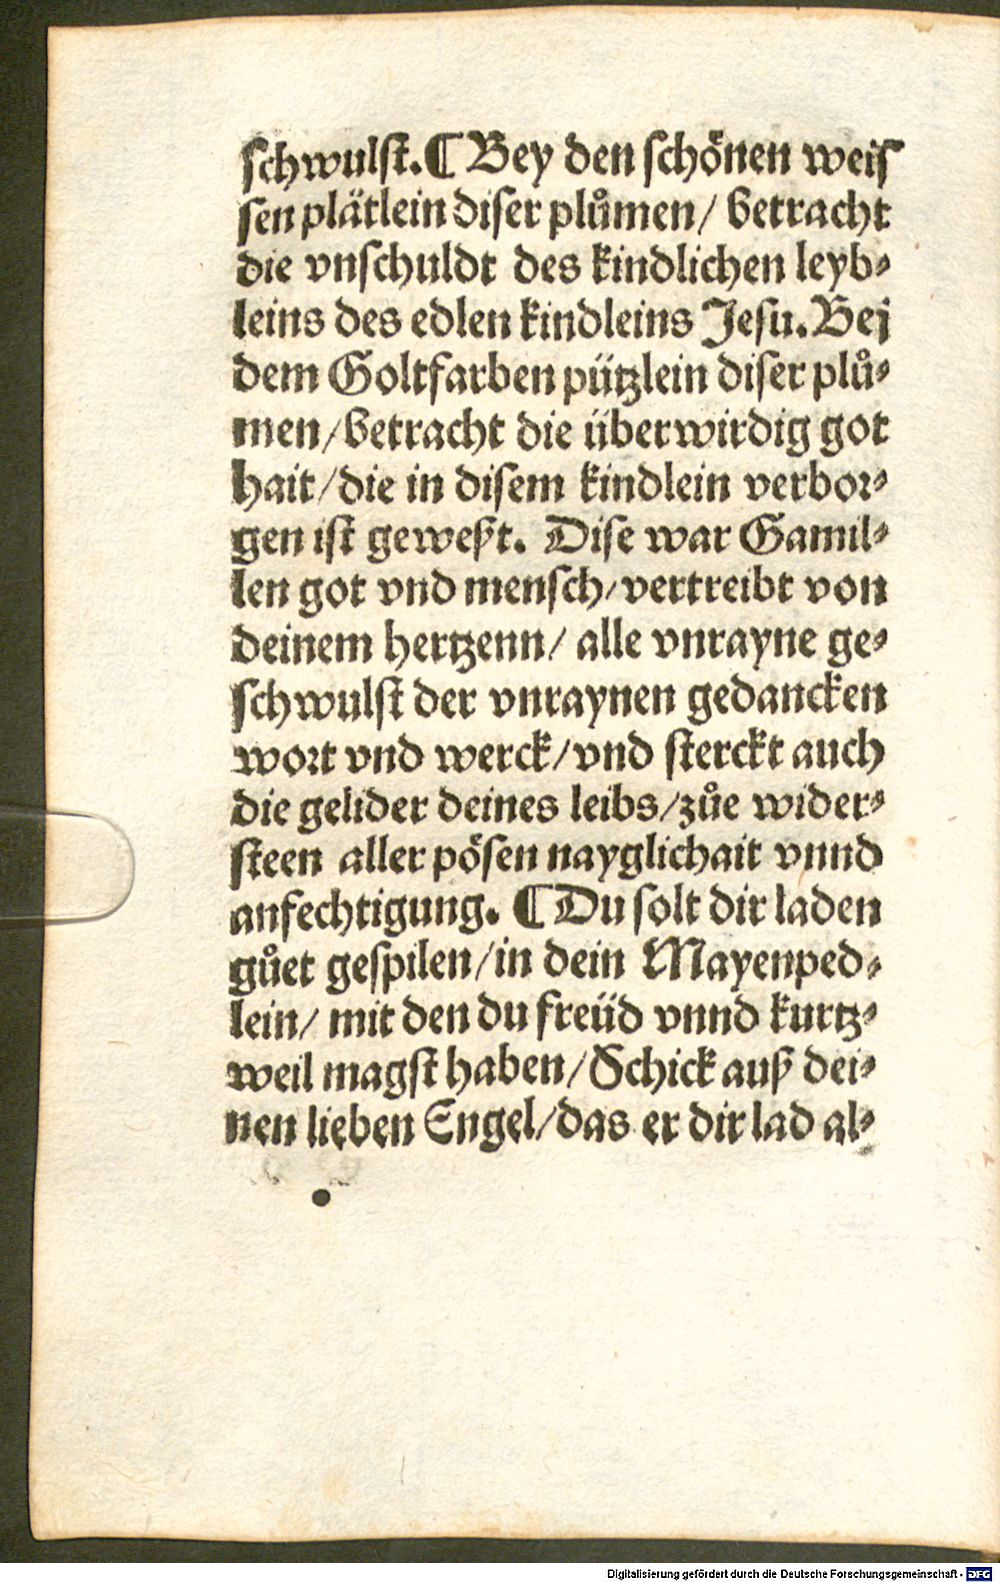 schwulst. ¶ Bey den schönen weis
sen plätlein diser plůmen / betracht
die vnschuldt des kindlichen leyb⸗
leins des edlen kindleins Jesu. Bej
dem Goltfarben pützlein diser plů⸗
men / betracht die überwirdig got
hait / die in disem kindlein verbor⸗
gen ist geweßt. Dise war Gamil⸗
len got vnd mensch / vertreibt von
deinem hertzenn / alle vnrayne ge⸗
schwulst der vnraynen gedancken
wort vnd werck / vnd sterckt auch
die gelider deines leibs / zůe wider⸗
steen aller pösen nayglichait vnnd
anfechtigung. ¶ Du solt dir laden
gůet gespilen / in dein Mayenped⸗
lein / mit den du freüd vnnd kurtz⸗
weil magst haben / Schick auß dei⸗
nen lieben Engel / das er dir lad al⸗
Digitalisierung gefördert durch die Deutsche Forschungsgemeinschaft - DFG